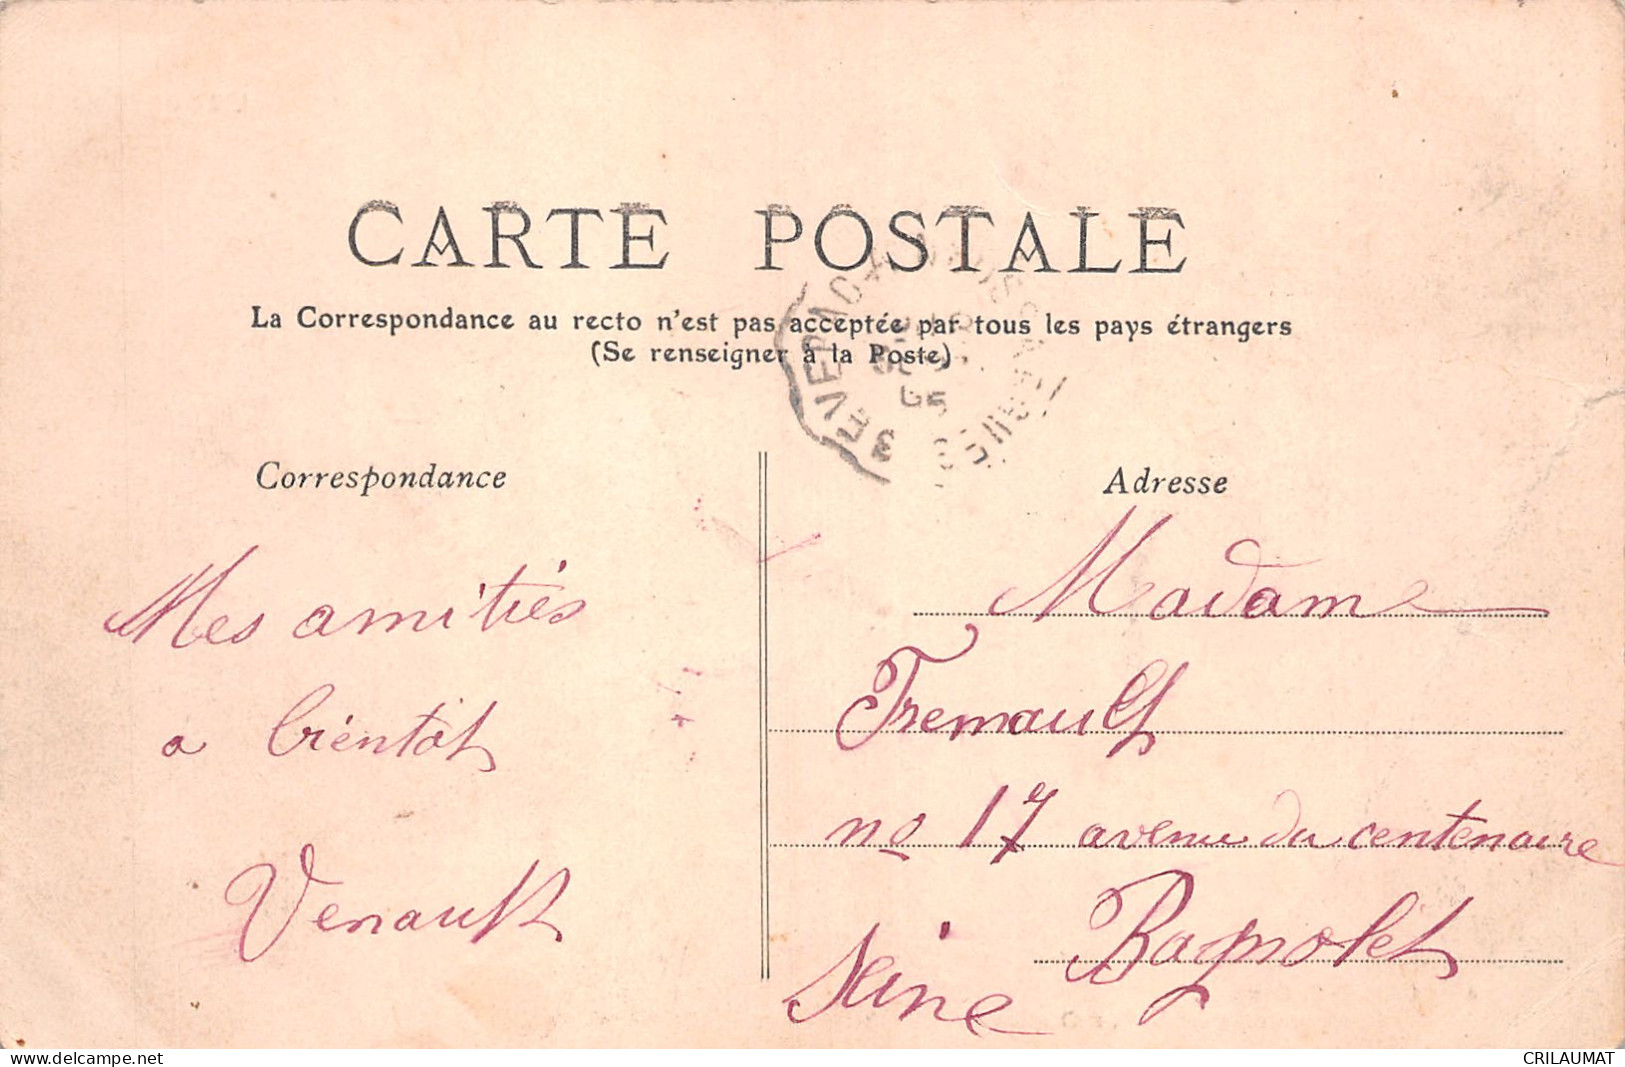 CARTE POSTALE
La Correspondance au recto n'est pas acceptée par tous les pays étrangers
(Se renseigner à la Poste)
Correspondance
Mes amitiés
a bientôt
Venault
Adresse
Madame
Fremault
no 17 avenue du centenaire
Bagnolet
Seine
www.delcampe.net
CRILAUMAT